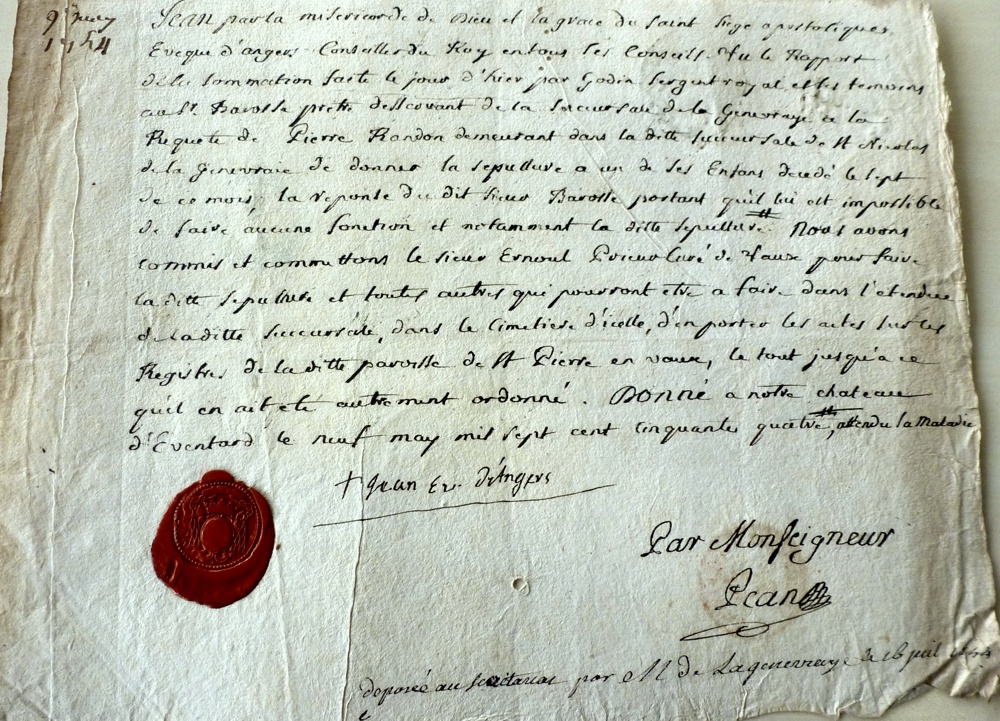 9 juillet
1754
JEAN par la misericorde de Dieu et la grace du Saint Siege apostolique,
Eveque d'angers Conseiller du Roy en tous ses Conseils. Vu le Rapport
de la sommation faite le jour d'hier par Godin sergent royal et ses temoins
au Sr. Barosse pretre desservant de la succursale de la Genevraye a la
Requete de Pierre Randon demeurant dans la ditte succursale de St Nicolas
de la Genevraie de donner la sepulture a un de ses Enfans decedé le sept
de ce mois, la reponse du dit sieur Barosse portant qu'il lui est impossible
de faire aucune fonction et notamment la ditte sepulture #. Nous avons
commis et commettons le sieur Ernoul Prieur Curé de Vaux pour faire
la ditte sepulture et toutes autres qui pourront etre a faire dans l'etendue
de la ditte succursale, dans le Cimetiere d'icelle, d'en porter les actes sur les
Registres de la ditte paroisse de St Pierre en vaux, le tout jusqu'a ce
qu'il en ait eté autrement ordonné. Donné a notre chateau
d'Eventard le neuf may mil sept cent cinquante quatre, # attendu la Maladie
+ Jean Ev. d'Angers
Par Monseigneur
Pean
deposée au secretariat par Mr de Lagenevraye le 16 juil 1754